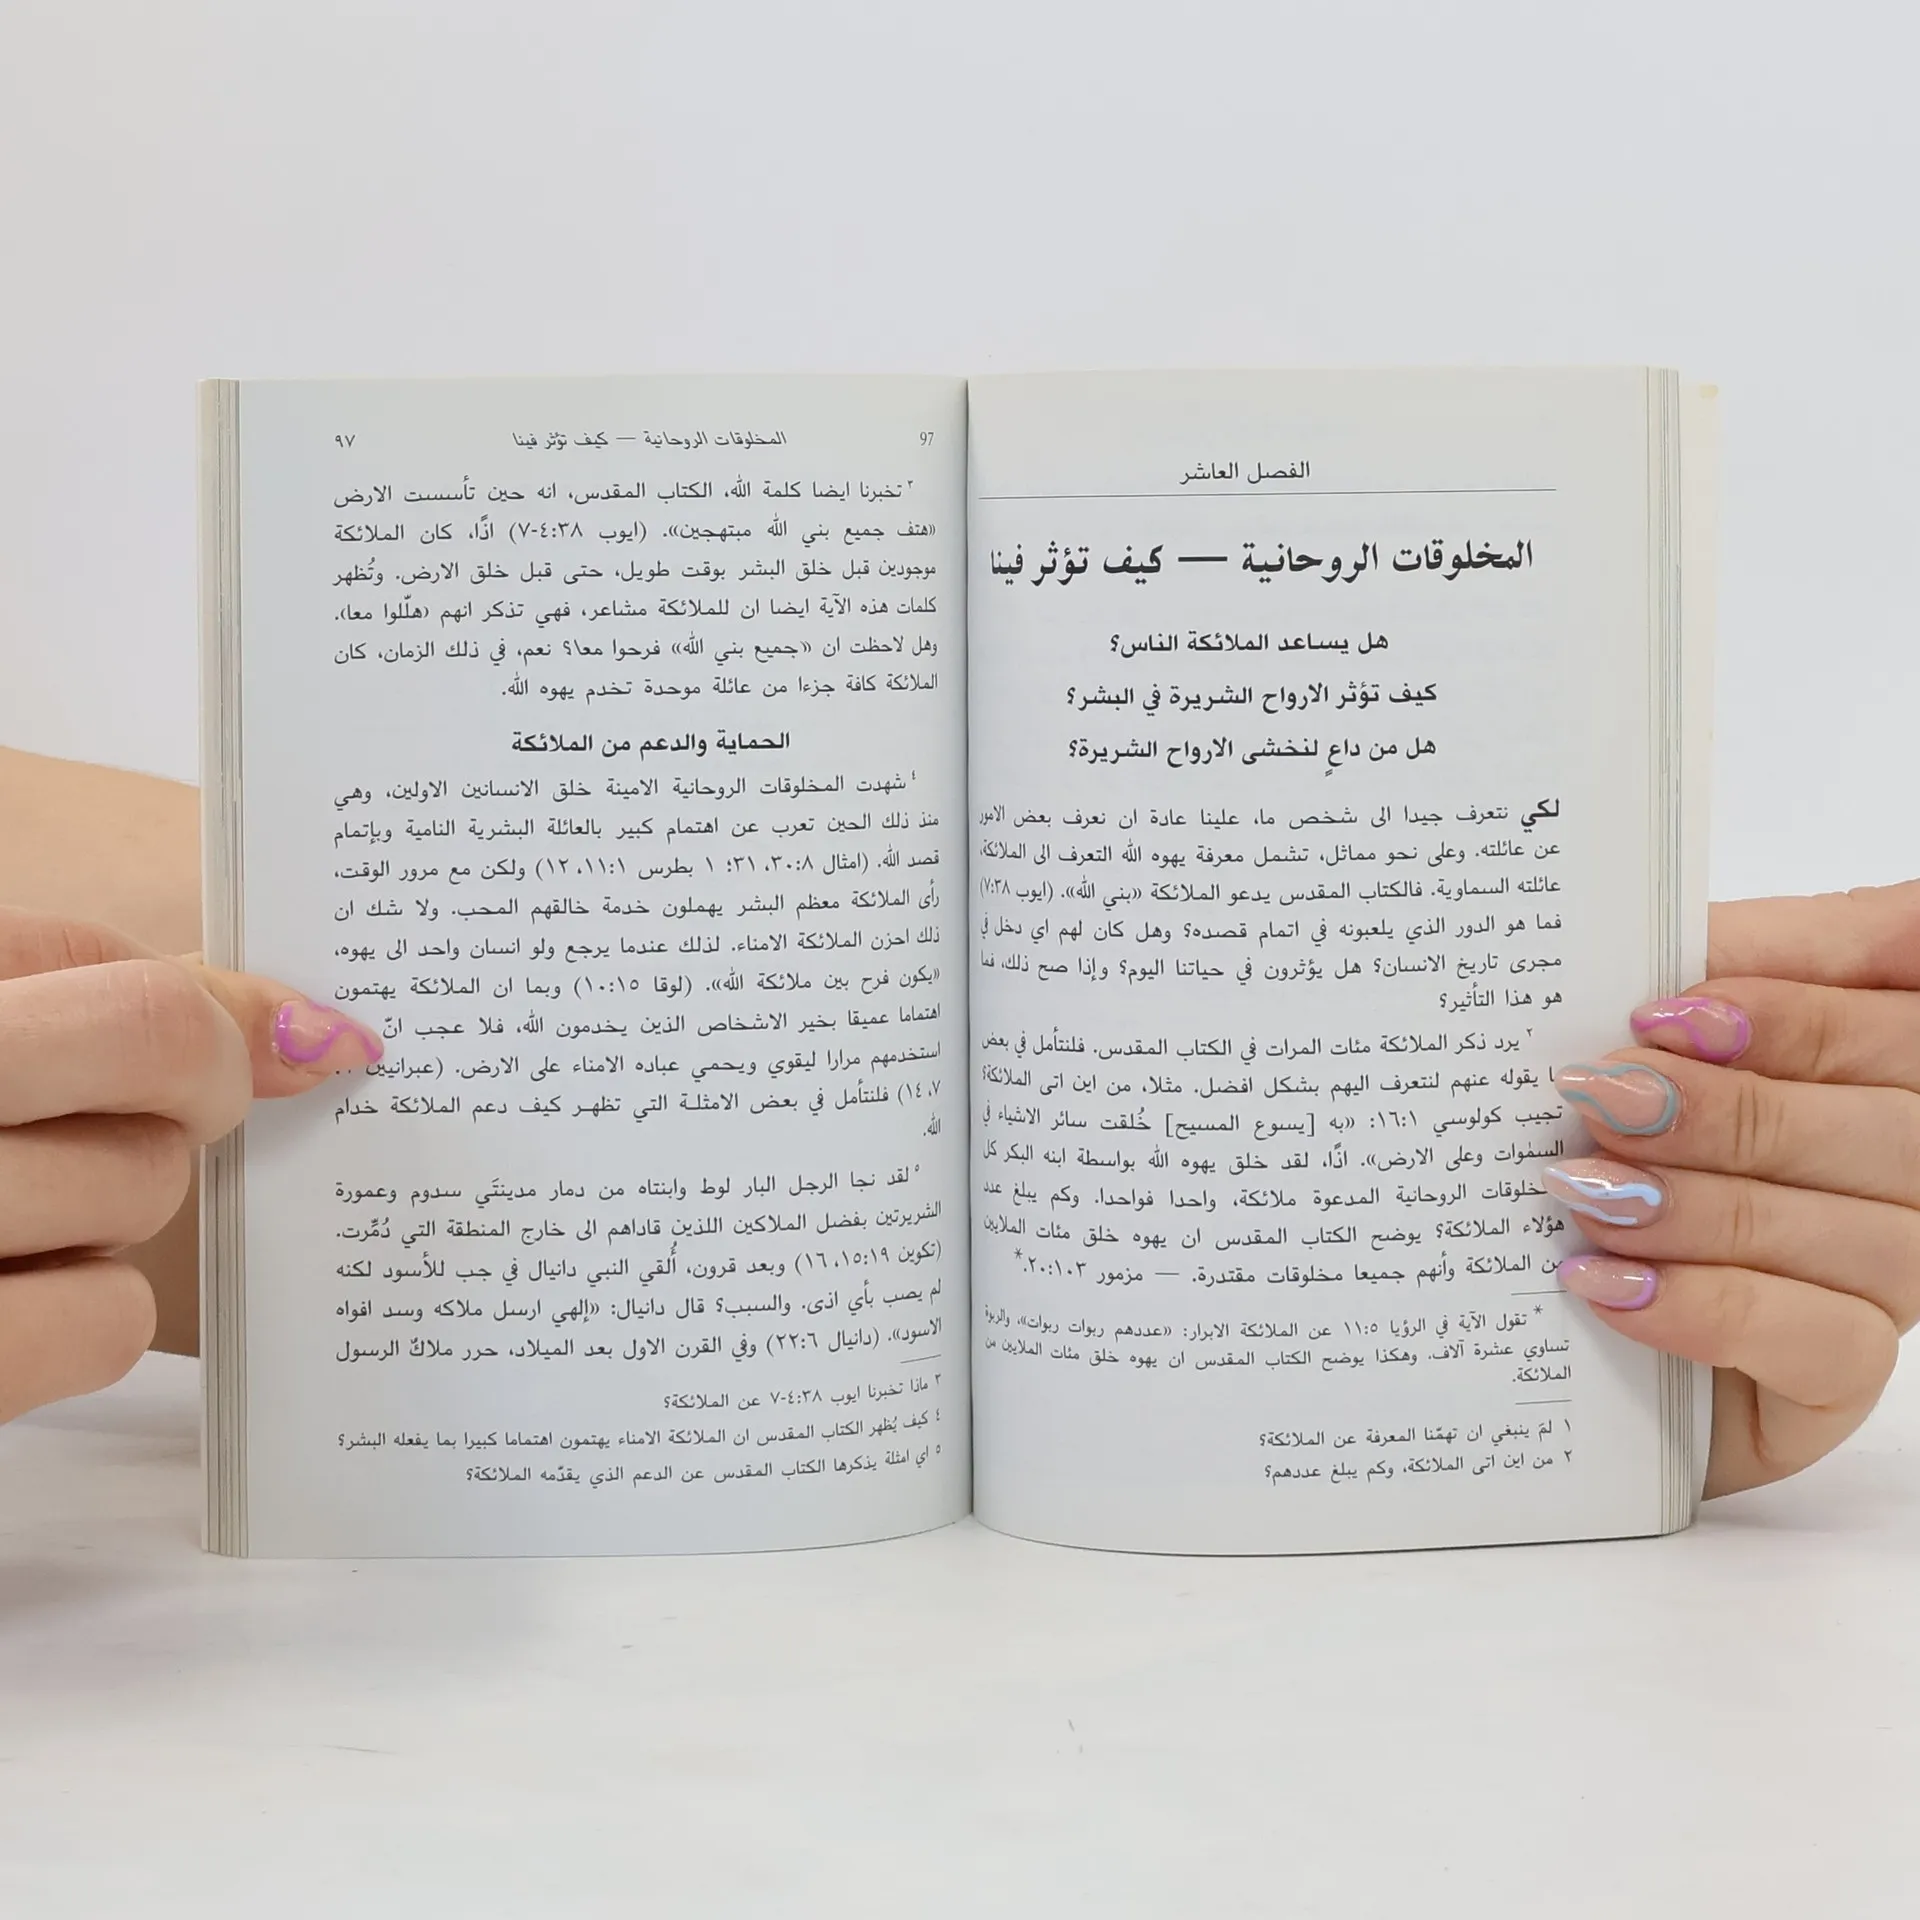 الفصل العاشر
المخلوقات الروحانية — كيف تؤثر فينا
هل يساعد الملائكة الناس؟
كيف تؤثر الارواح الشريرة في البشر؟
هل من داعٍ لنخشى الارواح الشريرة؟
لكي نتعرف جيدا الى شخص ما، علينا عادة ان نعرف بعض الامور
عن عائلته. وعلى نحو مماثل، تشمل معرفة يهوه الله التعرف الى الملائكة،
عائلته السماوية. فالكتاب المقدس يدعو الملائكة «بني الله». (ايوب ٣٨:٧)
فما هو الدور الذي يلعبونه في اتمام قصده؟ وهل كان لهم اي دخل في
مجرى تاريخ الانسان؟ هل يؤثرون في حياتنا اليوم؟ وإذا صح ذلك، فما
هو هذا التأثير؟
٢ يرد ذكر الملائكة مئات المرات في الكتاب المقدس. فلنتأمل في بعض
يقوله عنهم لنتعرف اليهم بشكل افضل. مثلا، من اين اتى الملائكة؟
تجيب كولوسي ١:١٦: «به [يسوع المسيح] خُلقت سائر الاشياء في
السموات وعلى الارض». اذًا، لقد خلق يهوه الله بواسطة ابنه البكر كل
الروحانية المدعوة ملائكة، واحدا فواحدا. وكم يبلغ عدد
هؤلاء الملائكة؟ يوضح الكتاب المقدس ان يهوه خلق مئات الملايين
من الملائكة وأنهم جميعا مخلوقات مقتدرة. — مزمور ١٠٣:٢٠.*
* تقول الآية في الرؤيا ٥:١١ عن الملائكة الابرار: «عددهم ربوات ربوات»، والربوة
تساوي عشرة آلاف. وهكذا يوضح الكتاب المقدس ان يهوه خلق مئات الملايين من
الملائكة.
١ لمَ ينبغي ان تهمّنا المعرفة عن الملائكة؟
٢ من اين اتى الملائكة، وكم يبلغ عددهم؟
97 المخلوقات الروحانية — كيف تؤثر فينا ٩٧
٣ تخبرنا ايضا كلمة الله، الكتاب المقدس، انه حين تأسست الارض
«هتف جميع بني الله مبتهجين». (ايوب ٣٨:٤-٧) اذًا، كان الملائكة
موجودين قبل خلق البشر بوقت طويل، حتى قبل خلق الارض. وتُظهر
كلمات هذه الآية ايضا ان للملائكة مشاعر، فهي تذكر انهم ‹هلّلوا معا›.
وهل لاحظت ان «جميع بني الله» فرحوا معا\؟ نعم، في ذلك الزمان، كان
الملائكة كافة جزءا من عائلة موحدة تخدم يهوه الله.
الحماية والدعم من الملائكة
٤ شهدت المخلوقات الروحانية الامينة خلق الانسانين الاولين، وهي
منذ ذلك الحين تعرب عن اهتمام كبير بالعائلة البشرية النامية وبإتمام
قصد الله. (امثال ٨:٣٠، ٣١؛ ١ بطرس ١:١١، ١٢) ولكن مع مرور الوقت،
رأى الملائكة معظم البشر يهملون خدمة خالقهم المحب. ولا شك ان
ذلك احزن الملائكة الامناء. لذلك عندما يرجع ولو انسان واحد الى يهوه،
«يكون فرح بين ملائكة الله». (لوقا ١٥:١٠) وبما ان الملائكة يهتمون
اهتماما عميقا بخير الاشخاص الذين يخدمون الله، فلا عجب انّ
استخدمهم مرارا ليقوي ويحمي عباده الامناء على الارض. (عبرانيين
٧، ١٤) فلنتأمل في بعض الامثلة التي تظهر كيف دعم الملائكة خدام
الله.
٥ لقد نجا الرجل البار لوط وابنتاه من دمار مدينتَي سدوم وعمورة
الشريرتين بفضل الملاكين اللذين قاداهم الى خارج المنطقة التي دُمِّرت.
(تكوين ١٩:١٥، ١٦) وبعد قرون، أُلقي النبي دانيال في جب للأسود لكنه
لم يصب بأي اذى. والسبب؟ قال دانيال: «إلهي ارسل ملاكه وسد افواه
الاسود». (دانيال ٦:٢٢) وفي القرن الاول بعد الميلاد، حرر ملاكٌ الرسول
٣ ماذا تخبرنا ايوب ٣٨:٤-٧ عن الملائكة؟
٤ كيف يُظهر الكتاب المقدس ان الملائكة الامناء يهتمون اهتماما كبيرا بما يفعله البشر؟
٥ اي امثلة يذكرها الكتاب المقدس عن الدعم الذي يقدّمه الملائكة؟